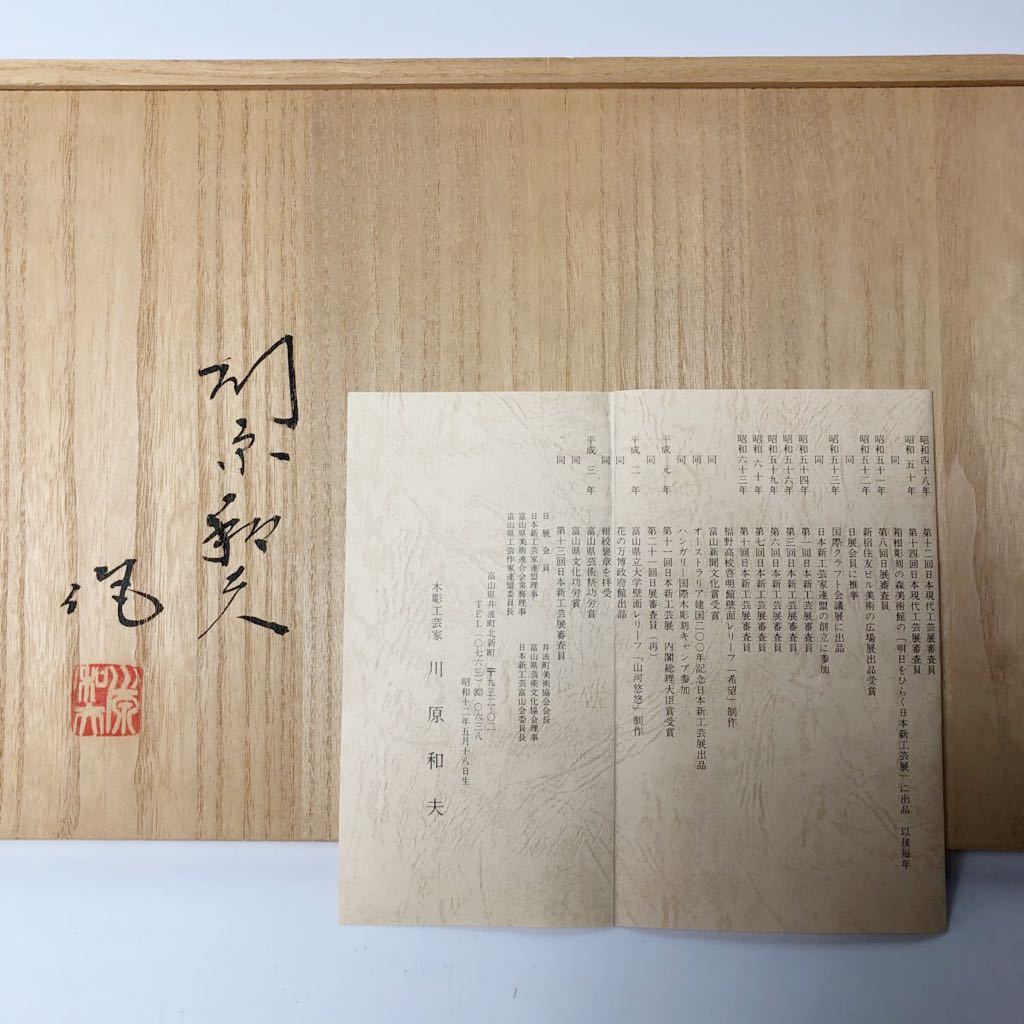 昭和四十八年 第十二回日本現代工芸展審査員
昭和五十年 第十四回日本現代工芸展審査員
同 箱根彫刻の森美術館の「明日をひらく日本新工芸展」に出品 以後毎年
昭和五十一年 第八回日展審査員
昭和五十二年 新宿住友ビル美術の広場展出品受賞
同 日展会員に推挙
昭和五十三年 国際クラフト会議展に出品
同 日本新工芸家連盟の創立に参加
昭和五十四年 第一回日本新工芸展審査員
昭和五十六年 第三回日本新工芸展審査員
昭和五十九年 第六回日本新工芸展審査員
昭和六十年 第七回日本新工芸展審査員
昭和六十三年 第十回日本新工芸展審査員
福野高校啓明館壁面レリーフ「希望」制作
同 富山新聞文化賞受賞
同 オーストラリア建国二〇〇年記念日本新工芸展出品
同 ハンガリー国際木彫刻キャンプ参加
平成元年 第十一回日本新工芸展 内閣総理大臣賞受賞
同 第二十一回日展審査員(再)
平成二年 富山県立大学壁面レリーフ「山河悠悠」制作
同 花の万博政府館出品
同 紺綬褒章を拝受
平成三年 富山県芸術祭功労賞
同 富山県文化功労賞
同 第十三回日本新工芸展審査員
日展会員 井波町美術協会会長
日本新工芸家連盟理事 富山県芸術文化協会理事
富山県美術連合会常務理事 日本新工芸富山会委員長
富山県工芸作家連盟委員長
富山県井波町北新町 〒九三二-〇二
TEL(〇七六三)㉘〇六三八
昭和十二年五月十八日生
木彫工芸家 川原和夫
川原和夫
作
川原
和夫